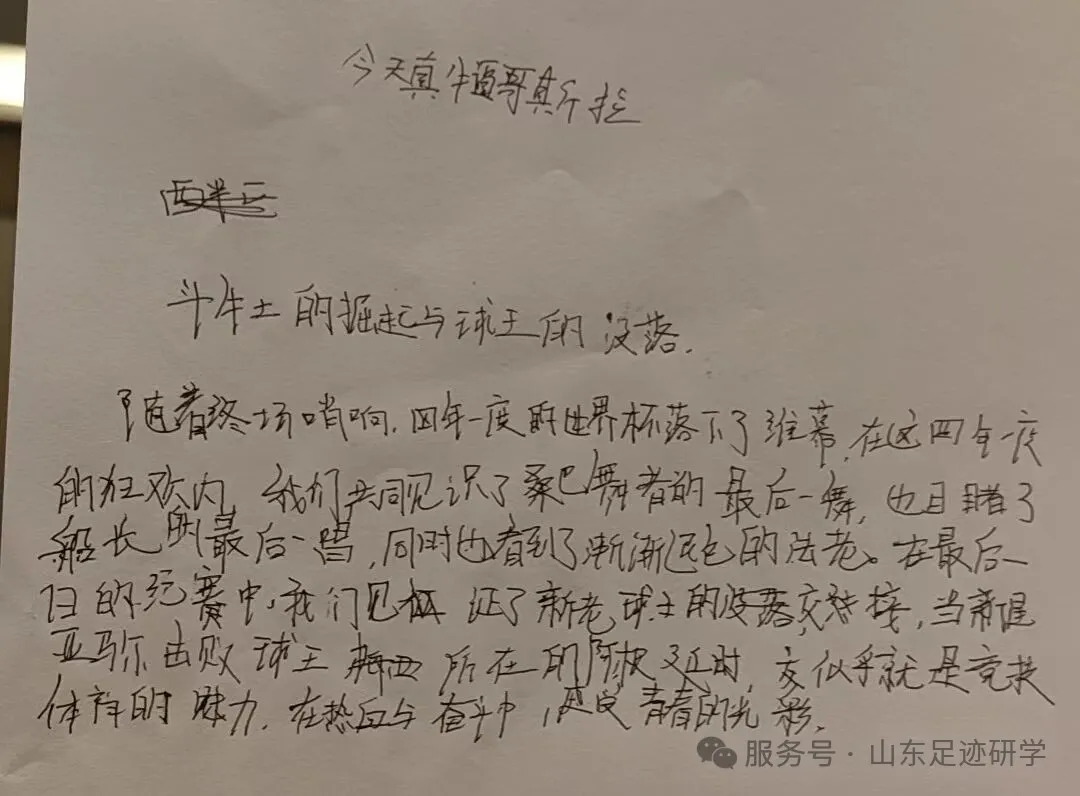 今天真牛逼哥其斤拉
斗牛士的掘起与球王的没落.
随着终场哨响,四年一度的世界杯落下了帷幕,在这四年一度
的狂欢内,我们共同见识了桑巴舞者的最后一舞,也目睹了
船长的最后一唱,同时也看到了渐渐远去的法老。在最后一
日的比赛中,我们见证了新老球王的交接,当新星
亚马尔击败球王梅西所在的阿根廷时,这似乎就是竞技
体育的魅力.在热血与奋斗中,是青春的光影.
服务号·山东足迹研学